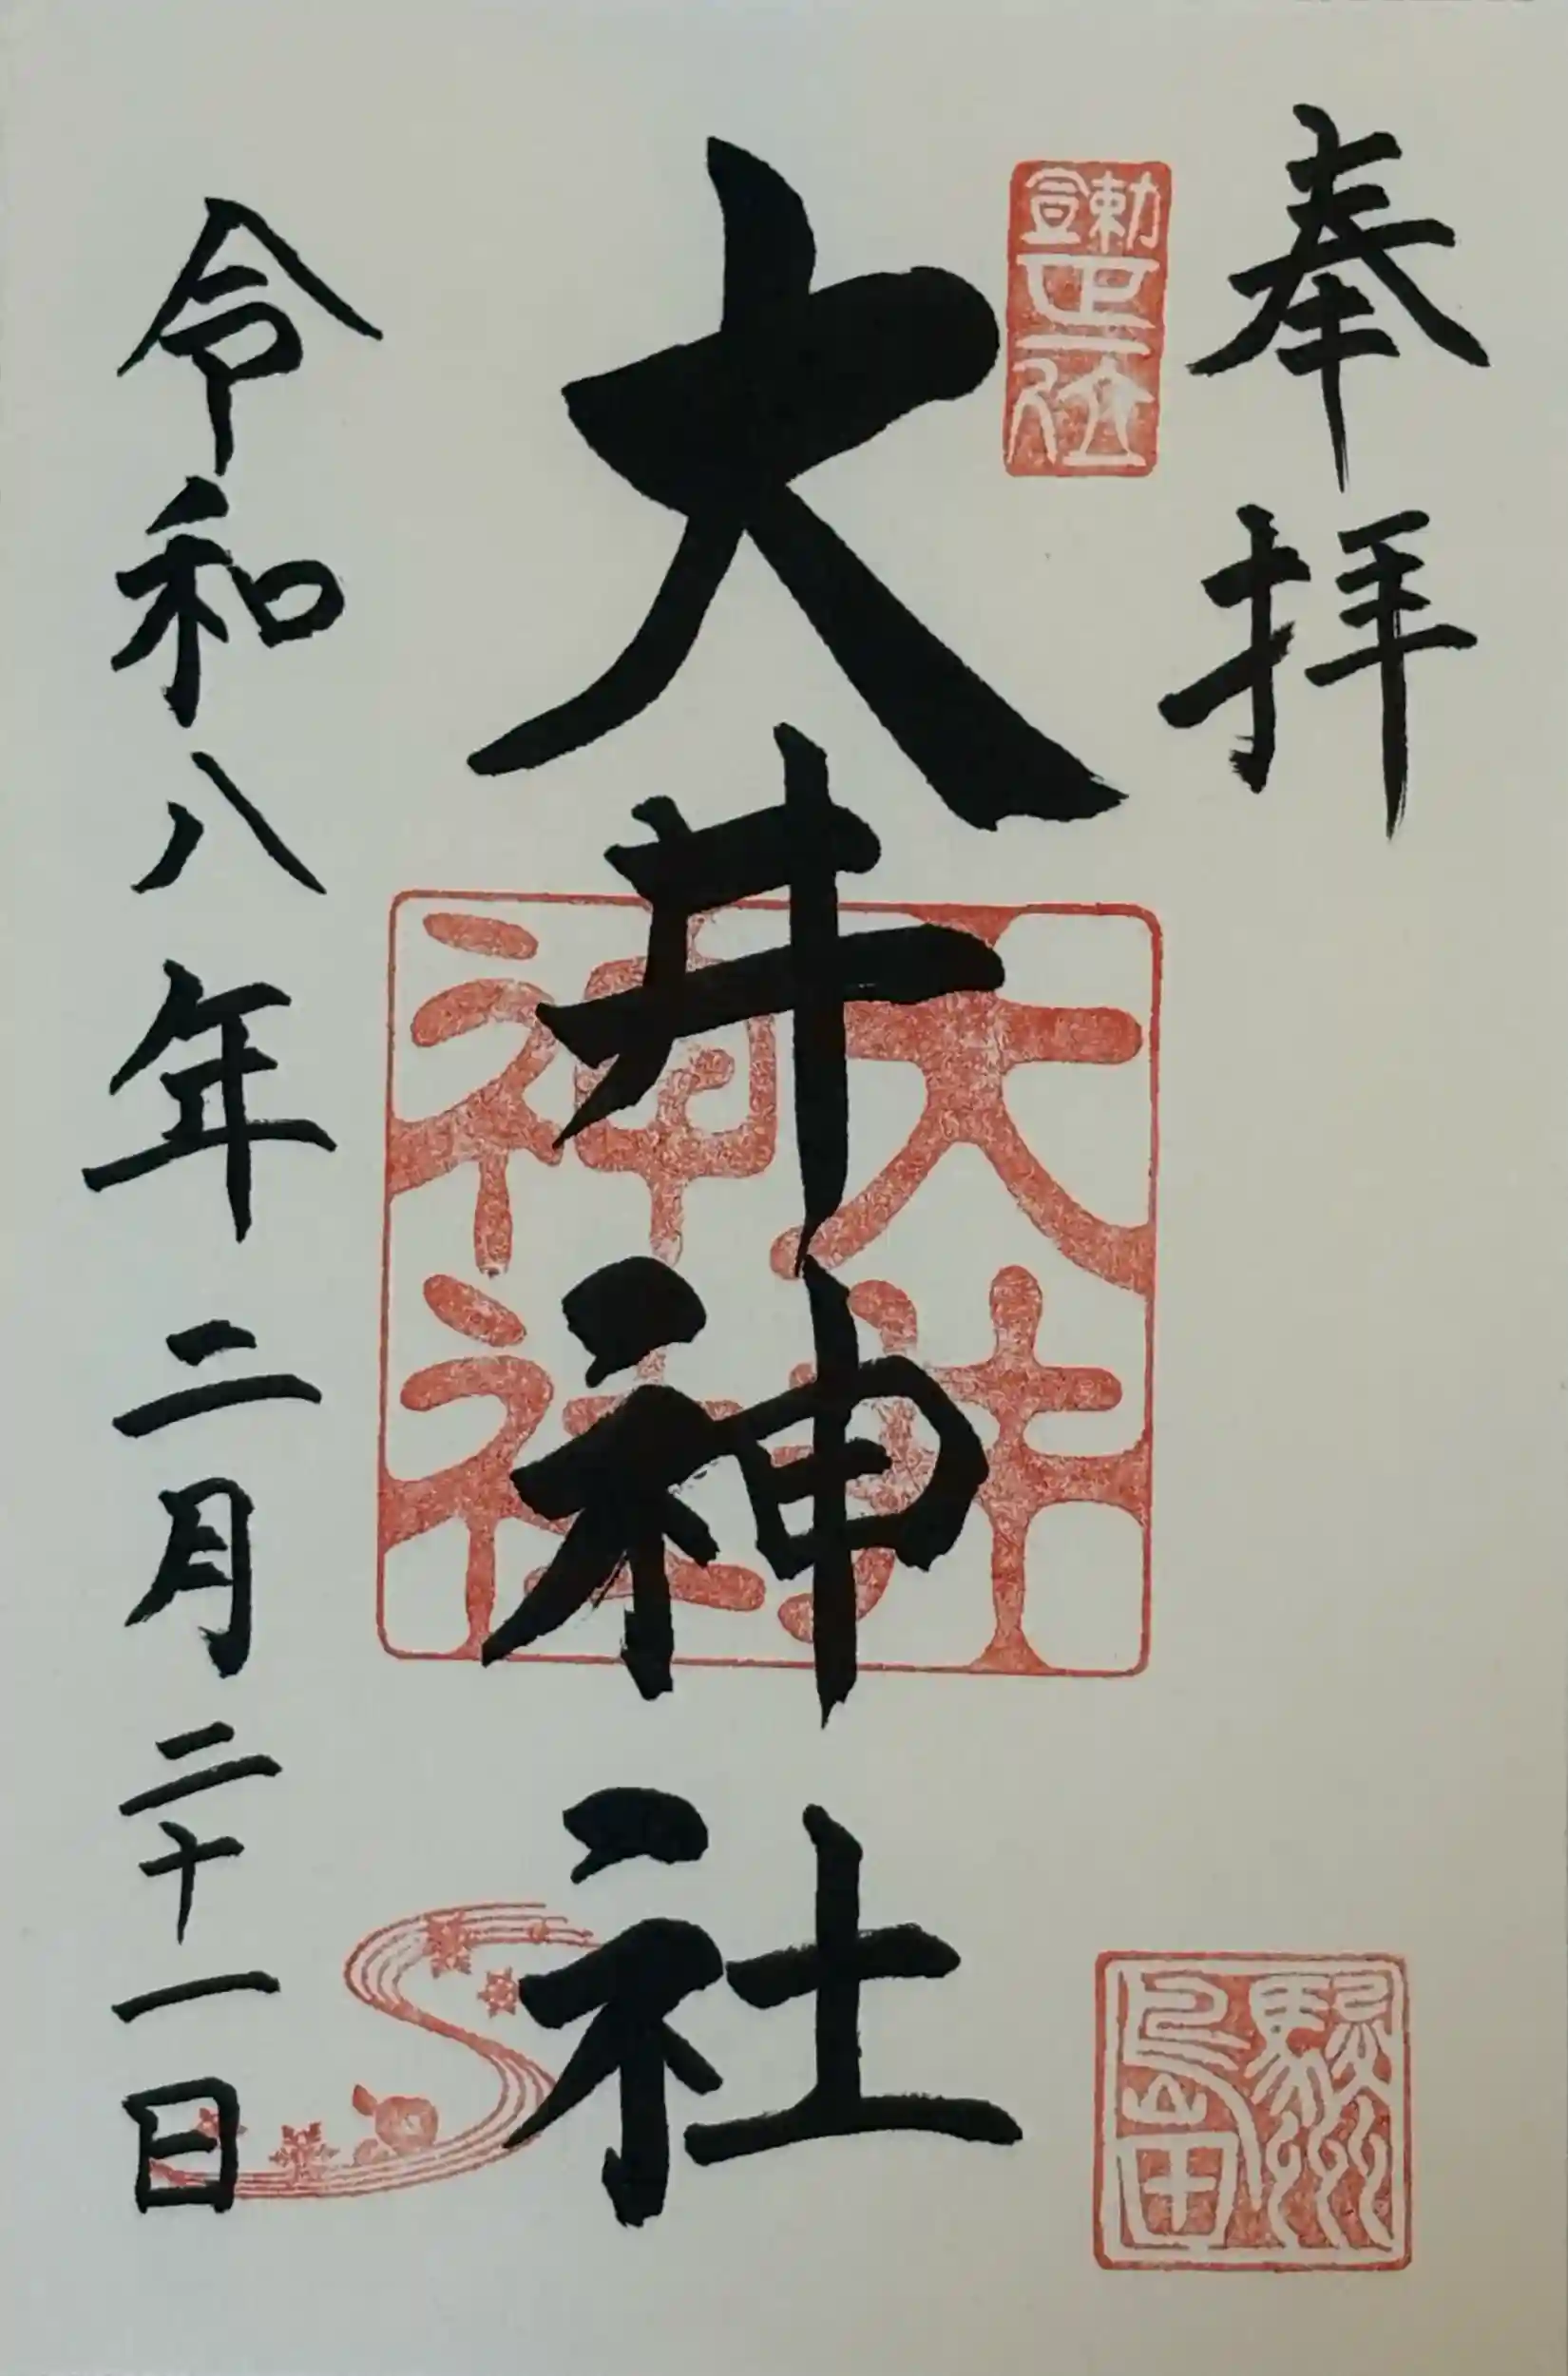 奉拝
勅宣
正一位
大井神社
大井
神社
駿州
島田
令和八年二月二十一日